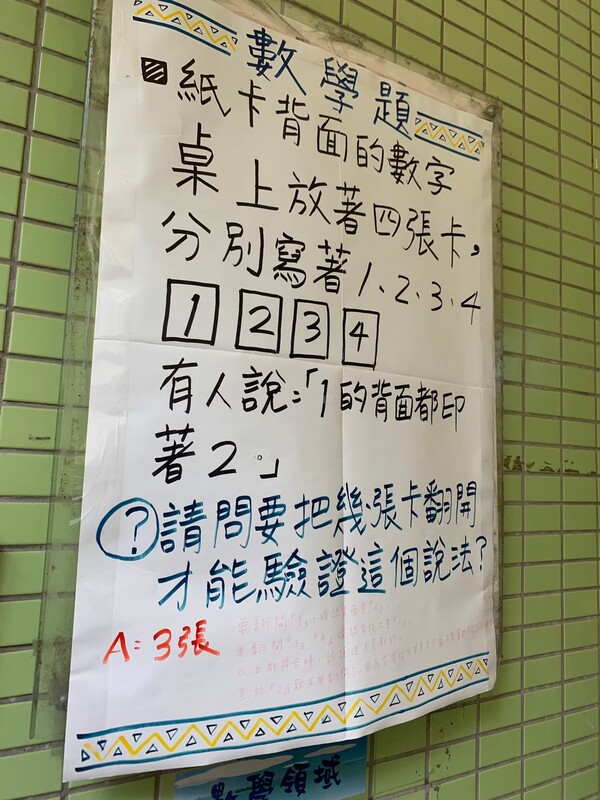 數學題
紙卡背面的數字
桌上放著四張卡，
分別寫著1、2、3、4
1 2 3 4
有人說：「1的背面都印
著2。」
?請問要把幾張卡翻開
才能驗證這個說法?
A=3張
數學領域